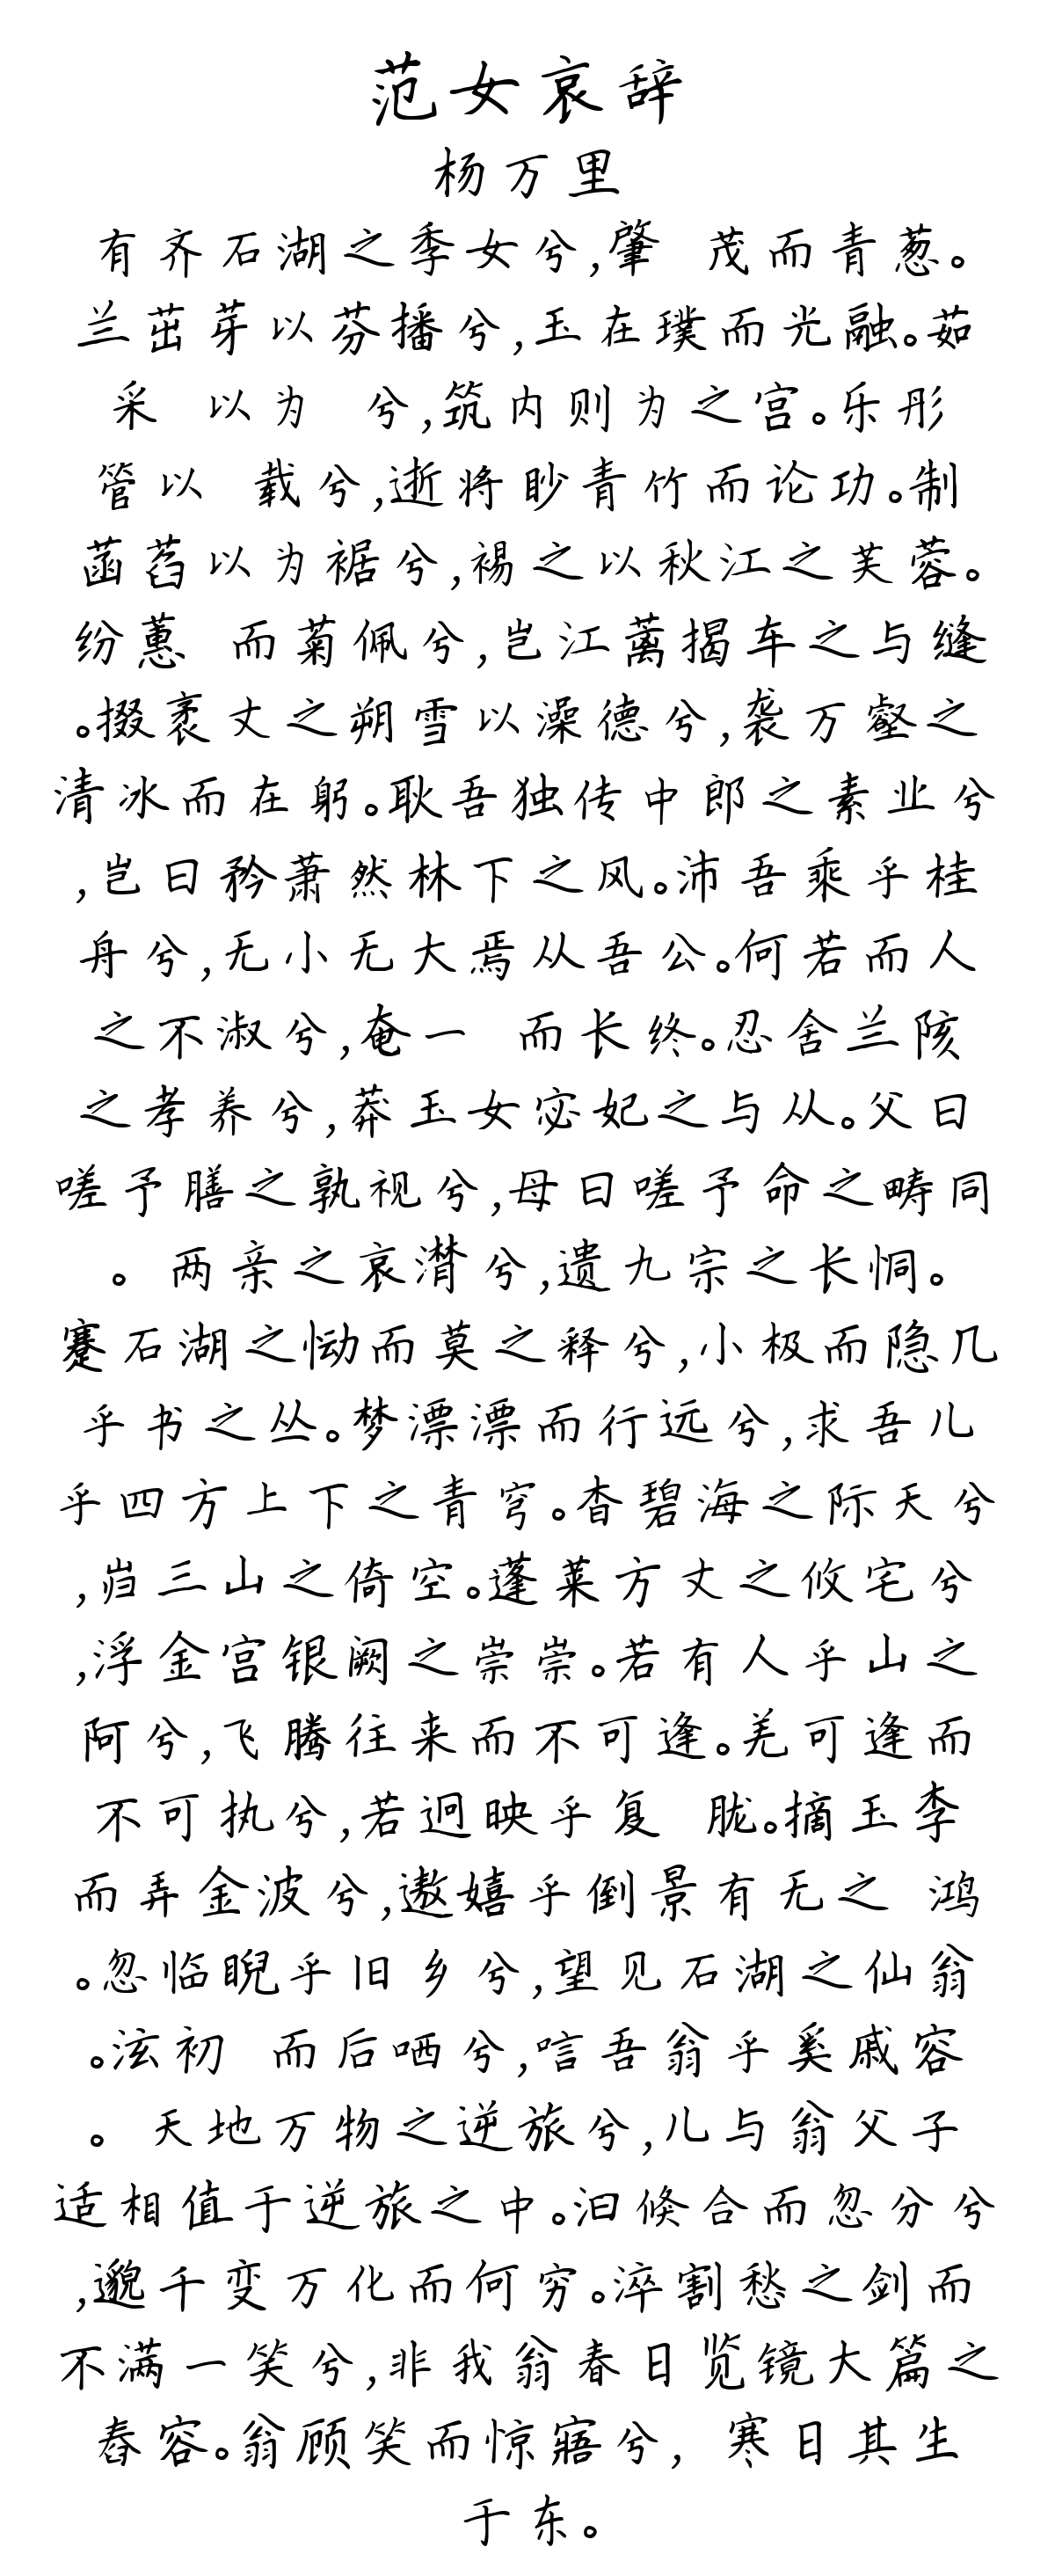 范女哀辞
杨万里
有齐石湖之季女兮,肇 茂而青葱。
兰茁芽以芬播兮,玉在璞而光融。茹
采 以为 兮,筑内则为之宫。乐彤
管以 载兮,逝将眇青竹而论功。制
菡萏以为裾兮,裼之以秋江之芙蓉。
纷蕙 而菊佩兮,岂江蓠揭车之与缝
。掇袤丈之朔雪以澡德兮,袭万壑之
清冰而在躬。耿吾独传中郎之素业兮
,岂曰矜萧然林下之风。沛吾乘乎桂
舟兮,无小无大焉从吾公。何若而人
之不淑兮,奄一 而长终。忍舍兰陔
之孝养兮,莽玉女宓妃之与从。父曰
嗟予膳之孰视兮,母曰嗟予命之畴同
。 两亲之哀潸兮,遗九宗之长恫。
蹇石湖之恸而莫之释兮,小极而隐几
乎书之丛。梦漂漂而行远兮,求吾儿
乎四方上下之青穹。杳碧海之际天兮
,岿三山之倚空。蓬莱方丈之攸宅兮
,浮金宫银阙之崇崇。若有人乎山之
阿兮,飞腾往来而不可逢。羌可逢而
不可执兮,若迥映乎复 胧。摘玉李
而弄金波兮,遨嬉乎倒景有无之 鸿
。忽临睨乎旧乡兮,望见石湖之仙翁
。泫初 而后哂兮,唁吾翁乎奚戚容
。 天地万物之逆旅兮,儿与翁父子
适相值于逆旅之中。汩倏合而忽分兮
,邈千变万化而何穷。淬割愁之剑而
不满一笑兮,非我翁春日览镜大篇之
舂容。翁顾笑而惊寤兮, 寒日其生
于东。